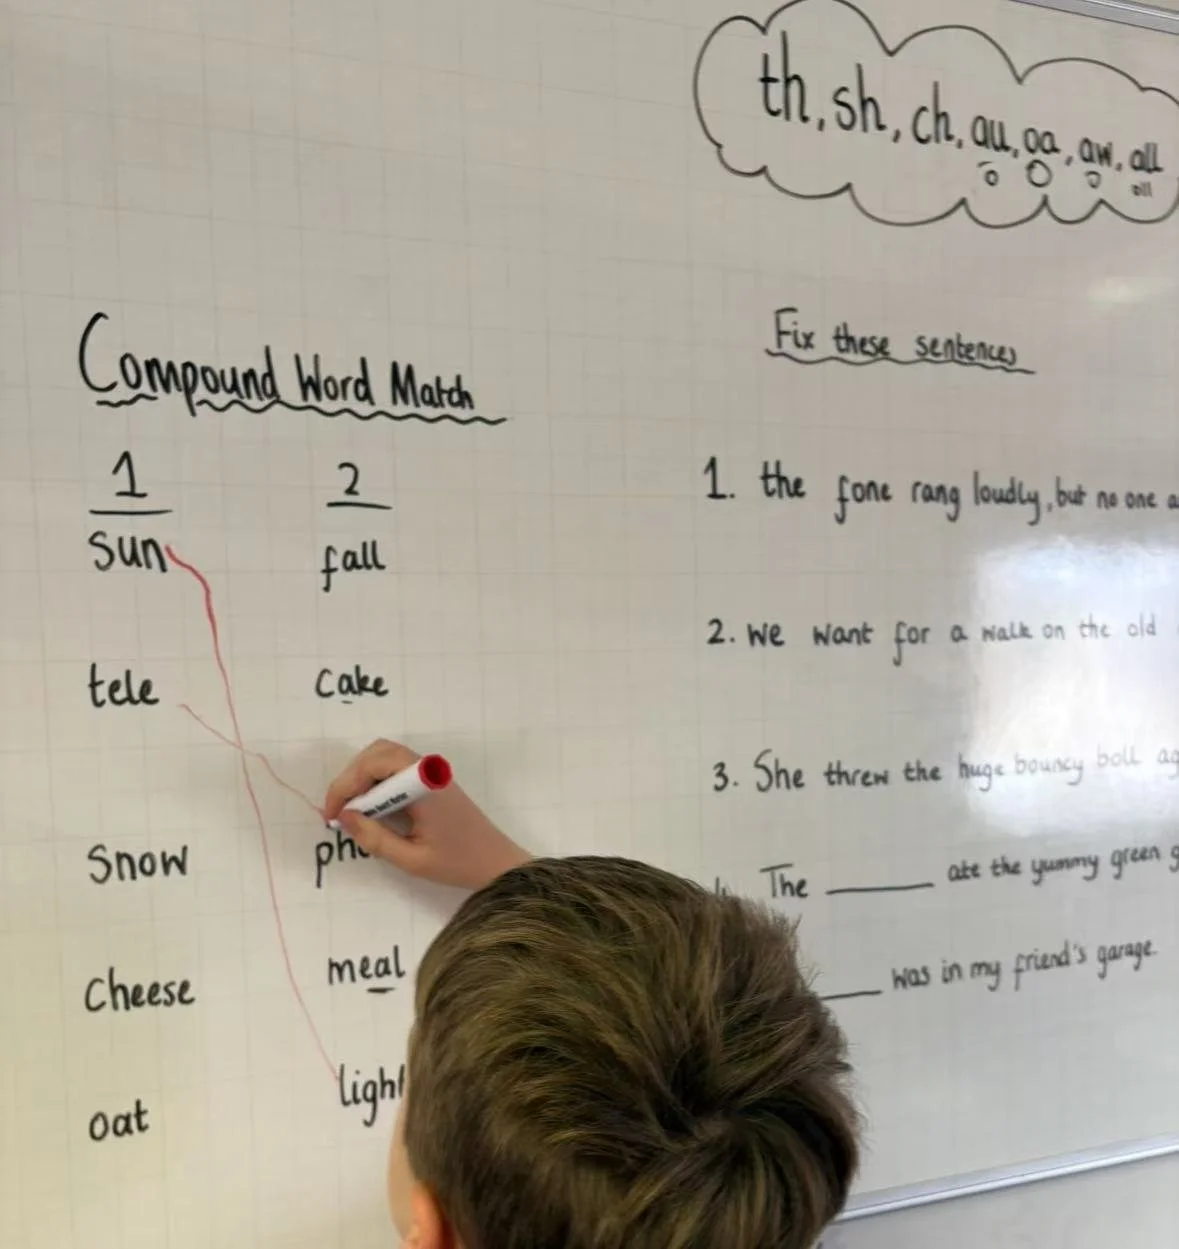 th, sh, ch, au, oa, aw, all
o o o oll
Compound Word Match
1 2
sun fall
tele cake
snow
cheese meal
oat light
Fix these sentences
1. the fone rang loudly, but no one
2. we want for a walk on the old
3. She threw the huge bouncy boll
The ______ ate the yummy green
______ was in my friend's garage.